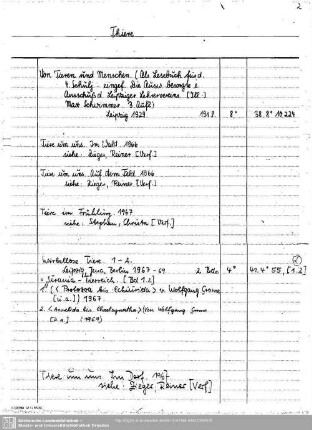 2
Tiere
Von Tieren und Menschen. (Als Lesebuch für d.
4. Schulj. - eingef. Die Ausw. besorgte e.
Ausschuß d. Leipziger Lehrervereins. (Ill.:)
Max Schwimmer. 3. Aufl.)
Leipzig 1929 8° 38. 8° 10224
Tiere um uns. Im Wald. 1966
siehe: Zieger, Reiner [Verf.]
Tiere um uns. Auf dem Feld. 1966
siehe: Zieger, Reiner [Verf.]
Tiere im Frühling 1967
siehe: Stephan, Christa [Verf.]
Wirbellose Tiere 1-2.
Leipzig, Jena, Berlin 1967-69 2 Bde 4° [1.2]
= Urania-Tierreich. [Bd 1.2]
1. (Protozoa bis Echiurida) v. Wolfgang Crome
[u.a.]) 1967
2. (Annelida bis Chaetognatha) (von Wolfgang Crome
[u.a.] 1969)
Tiere um uns. Im Dorf. 1967
siehe: Zieger Reiner [Verf]